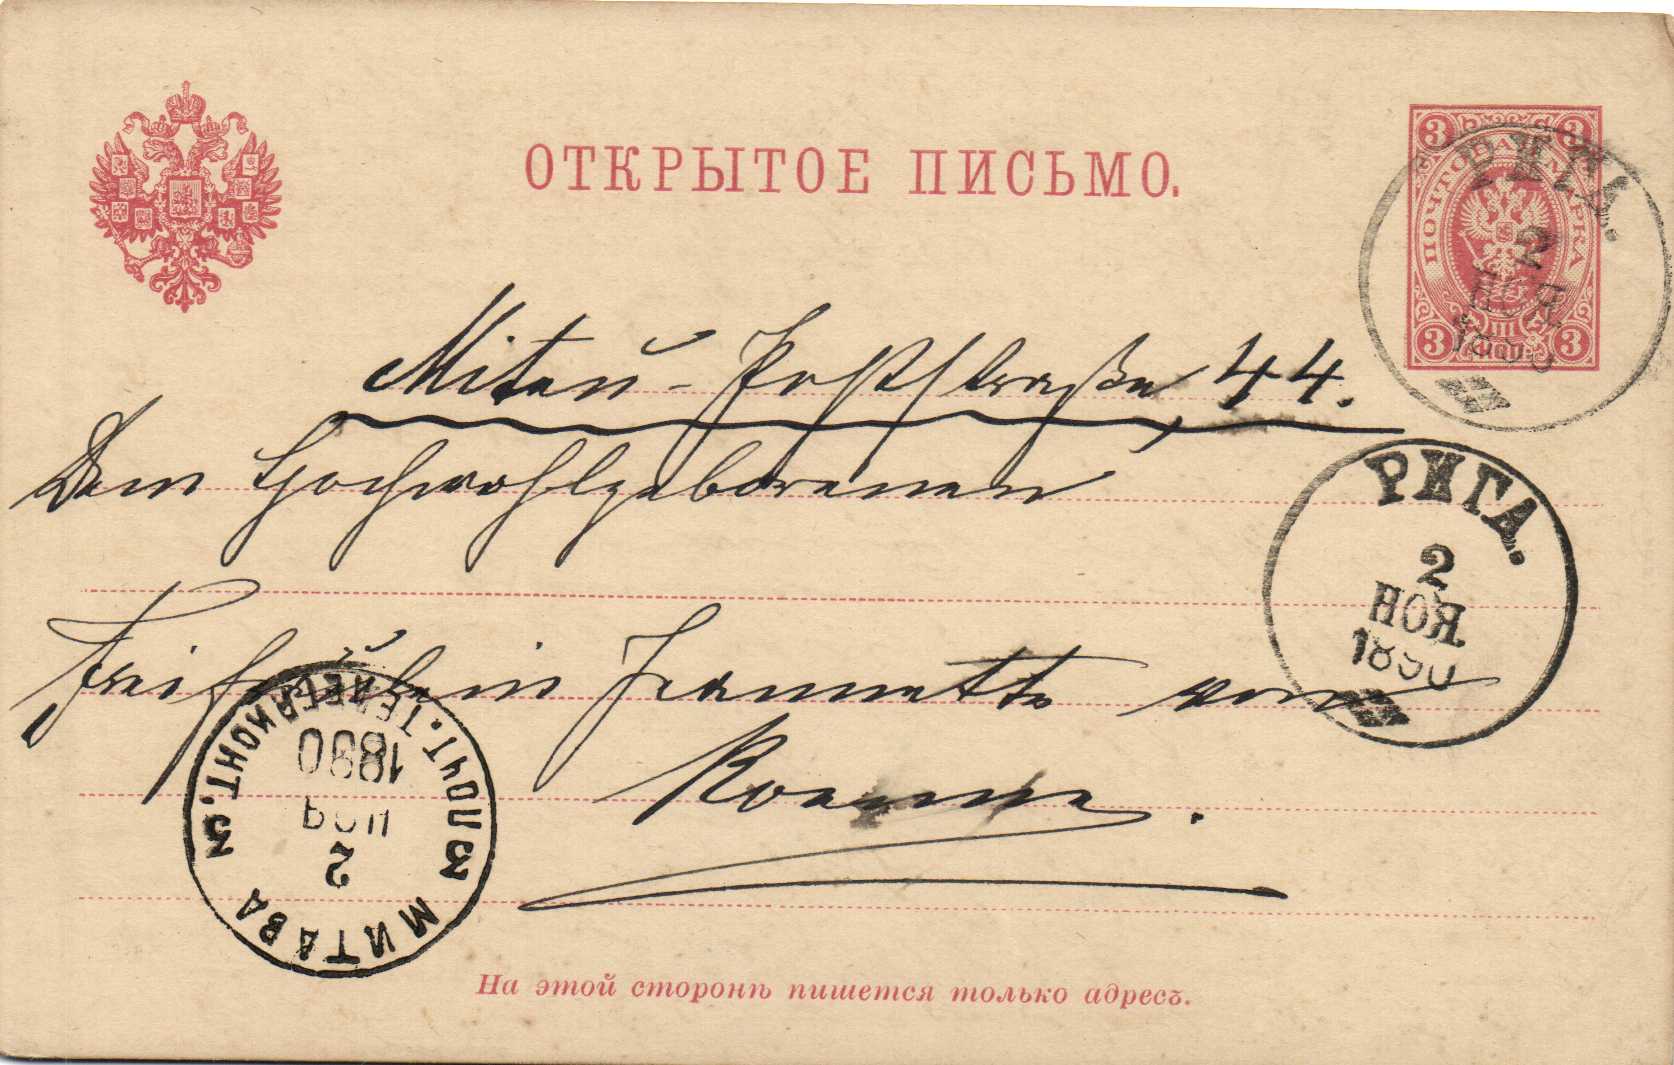 ОТКРЫТОЕ ПИСЬМО.
3 3
ПОЧТОВАЯ МАРКА
3 3
РИГА.
2
НОЯ
1890
Mitau - Poststraße, 44.
Dem Hochwohlgeborenen
РИГА.
2
НОЯ
1890
Freifräulein Jeannette von
Roenne.
МИТАВА
ПОЧТ. ТЕЛЕГР. КОНТ.
3 3
2
НОЯ
1890
На этой сторонѣ пишется только адресъ.